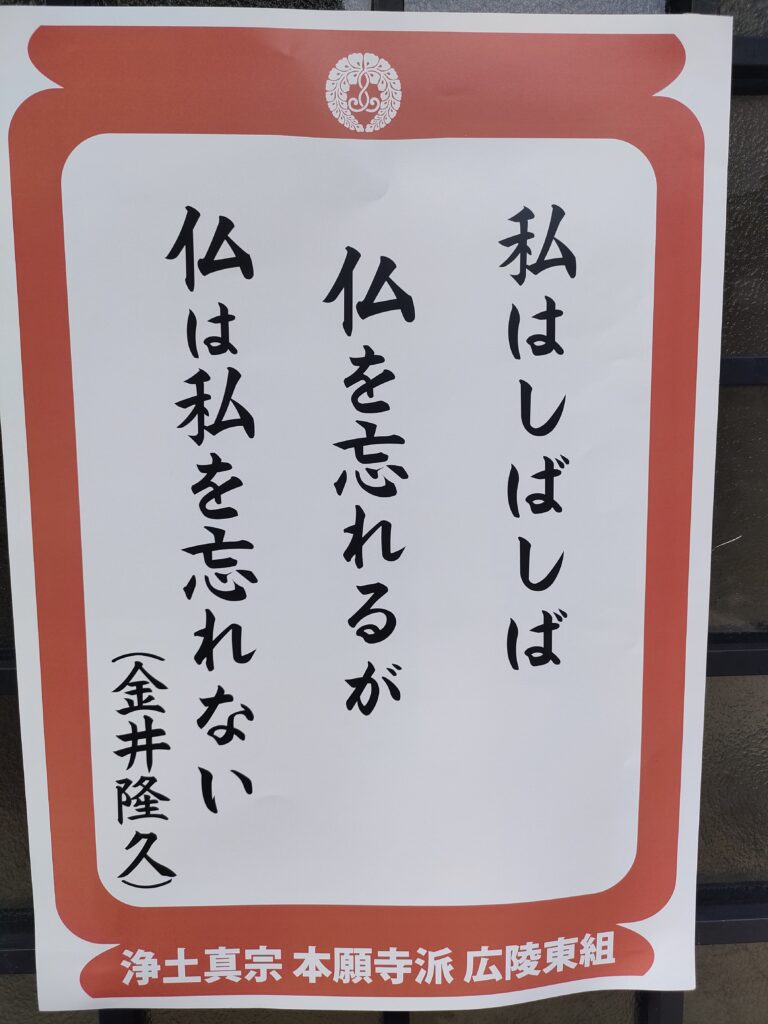 私はしばしば
仏を忘れるが
仏は私を忘れない
(金井隆久)
浄土真宗 本願寺派 広陵東組